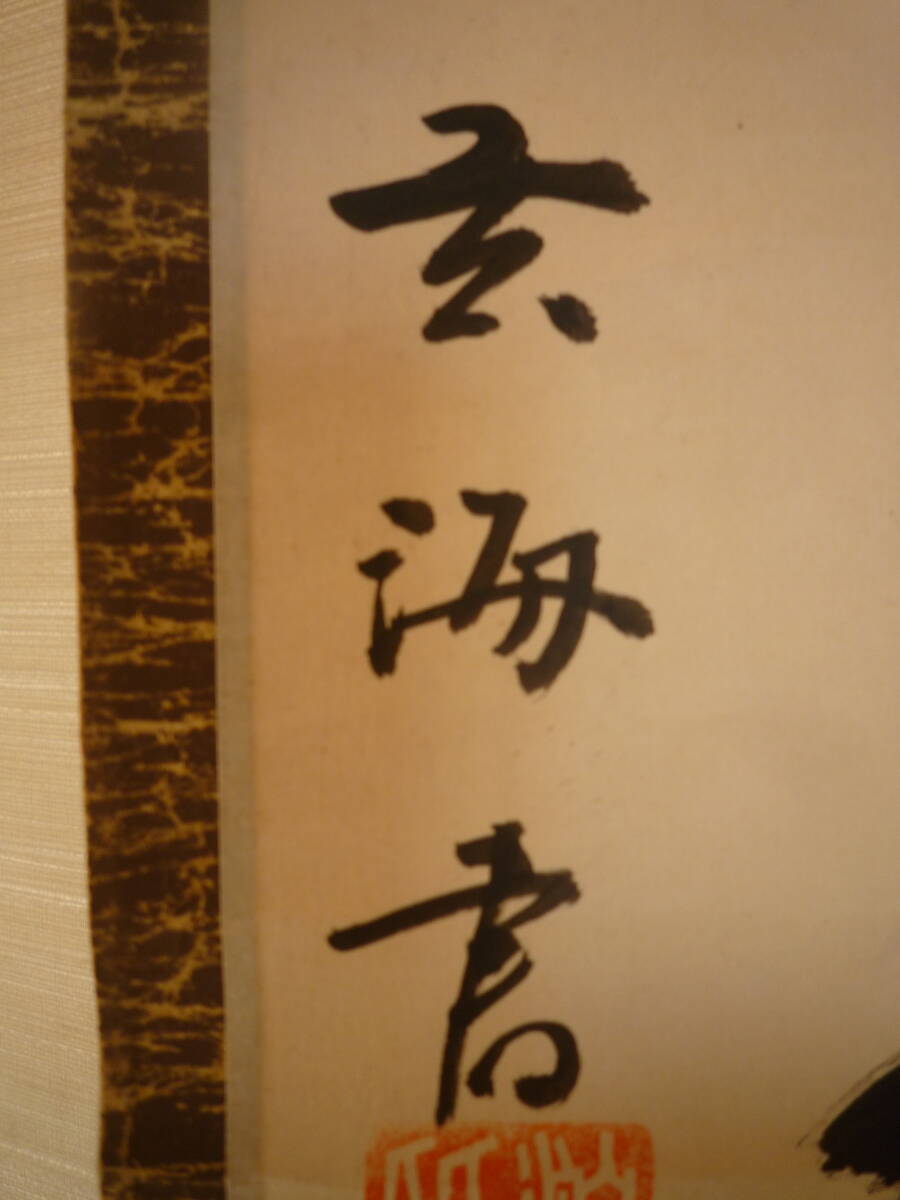 玄海書